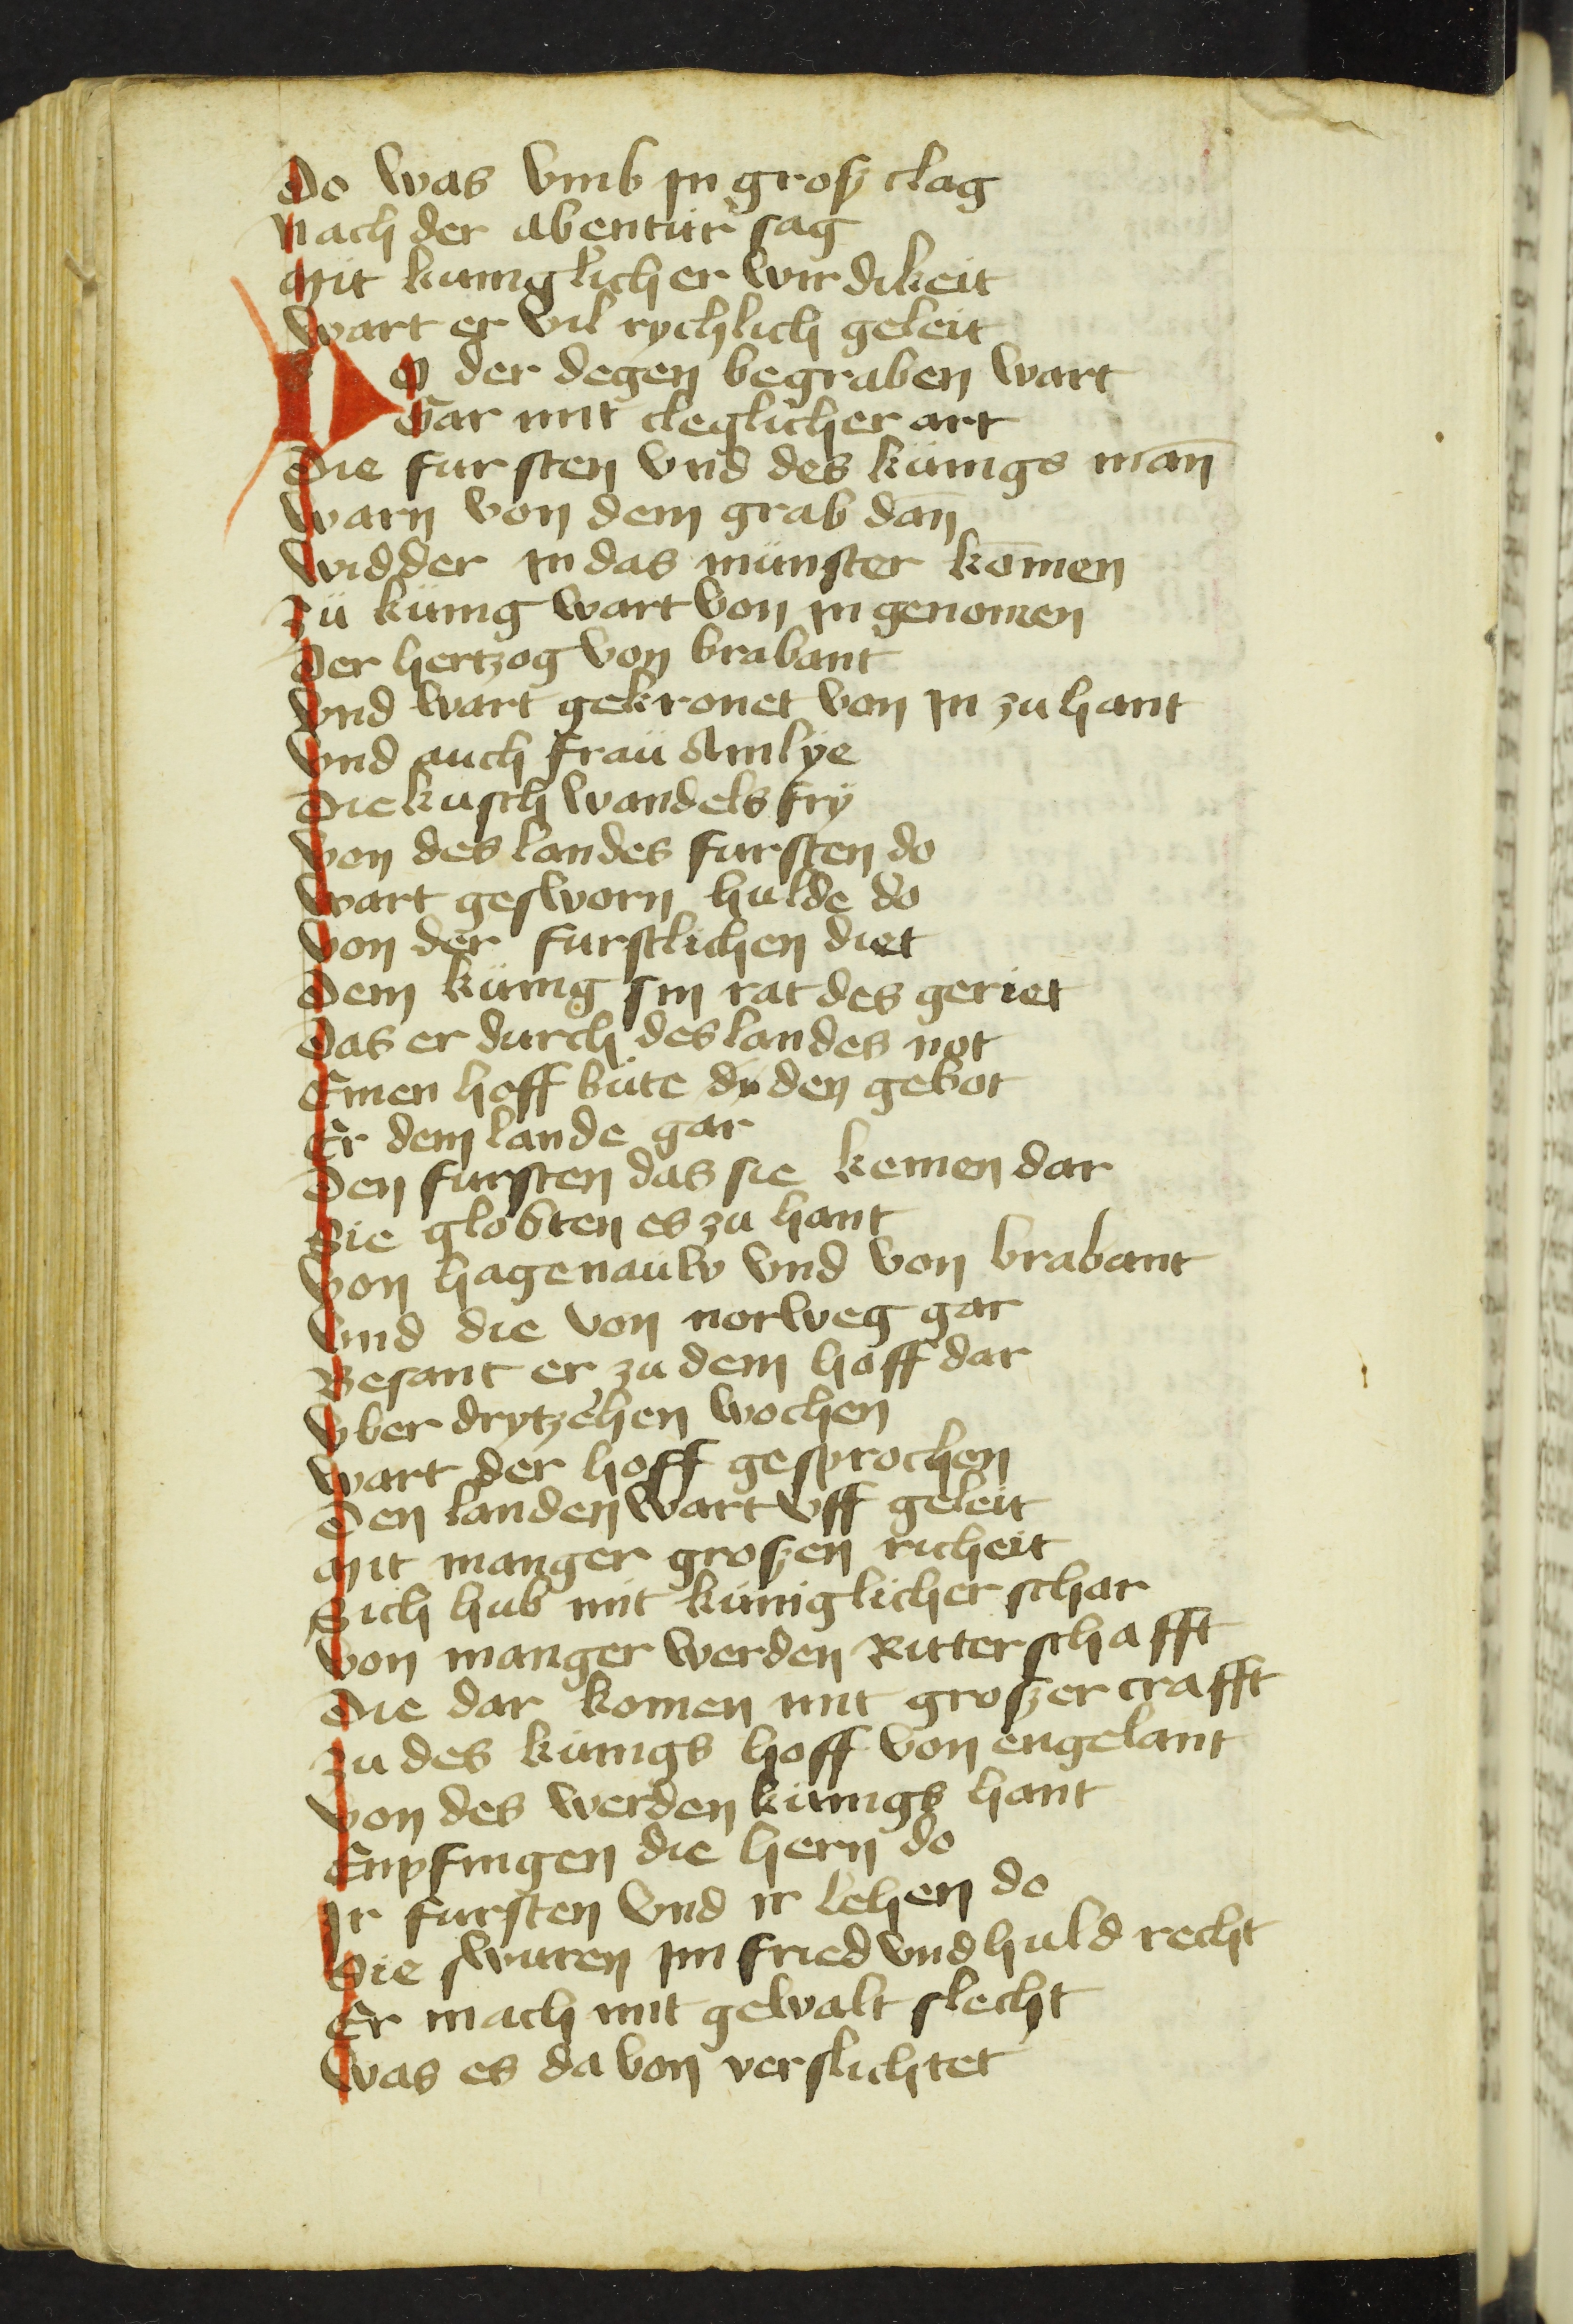 Do was vmb in grosz clag
Nach der abentur sag
Mit kuniglicher wirdikeit
Wart er vil rychlich geleit
Do der degen begraben wart
Gar mit cleglicher art
Die fursten vnd des künigs man̄
Warn von dem grab dan̄
Widder in das münster kōmen
Zü künig wart von in genomen
Der hertzog von brabant
Vnd wart gekronet von in zu hant
Vnd auch fraü Amlÿe
Die kusch wandels frÿ
Von des landes fursten do
Wart gesworn hulde do
Von der furstlichen diet
Dem künig sin rat des geriet
Das er durch des landes not
Einen hoff büte den gebot
Er dem lande gar
Den fursten das sie kemen dar
Sie globten es zu hant
Von hagenaüw vnd von brabant
Vnd die von norweg gar
Besant er zu dem hoff dar
Vber drytzehen wochen
Wart der hoff gesprochen
Den landen wart vff geleit
Mit manger groszen richeit
Sich hub mit küniglicher schar
Von manger werden Ritterschafft
Die dar komen mit groszer crafft
Zu des künigs hoff von engelant
Von des werden künigs hant
Enpfingen die hern do
Ir fursten vnd ir lehen do
Sie swuren im fried vnd huld recht
Er mach mit gewalt slecht
Was es da von verslichtet